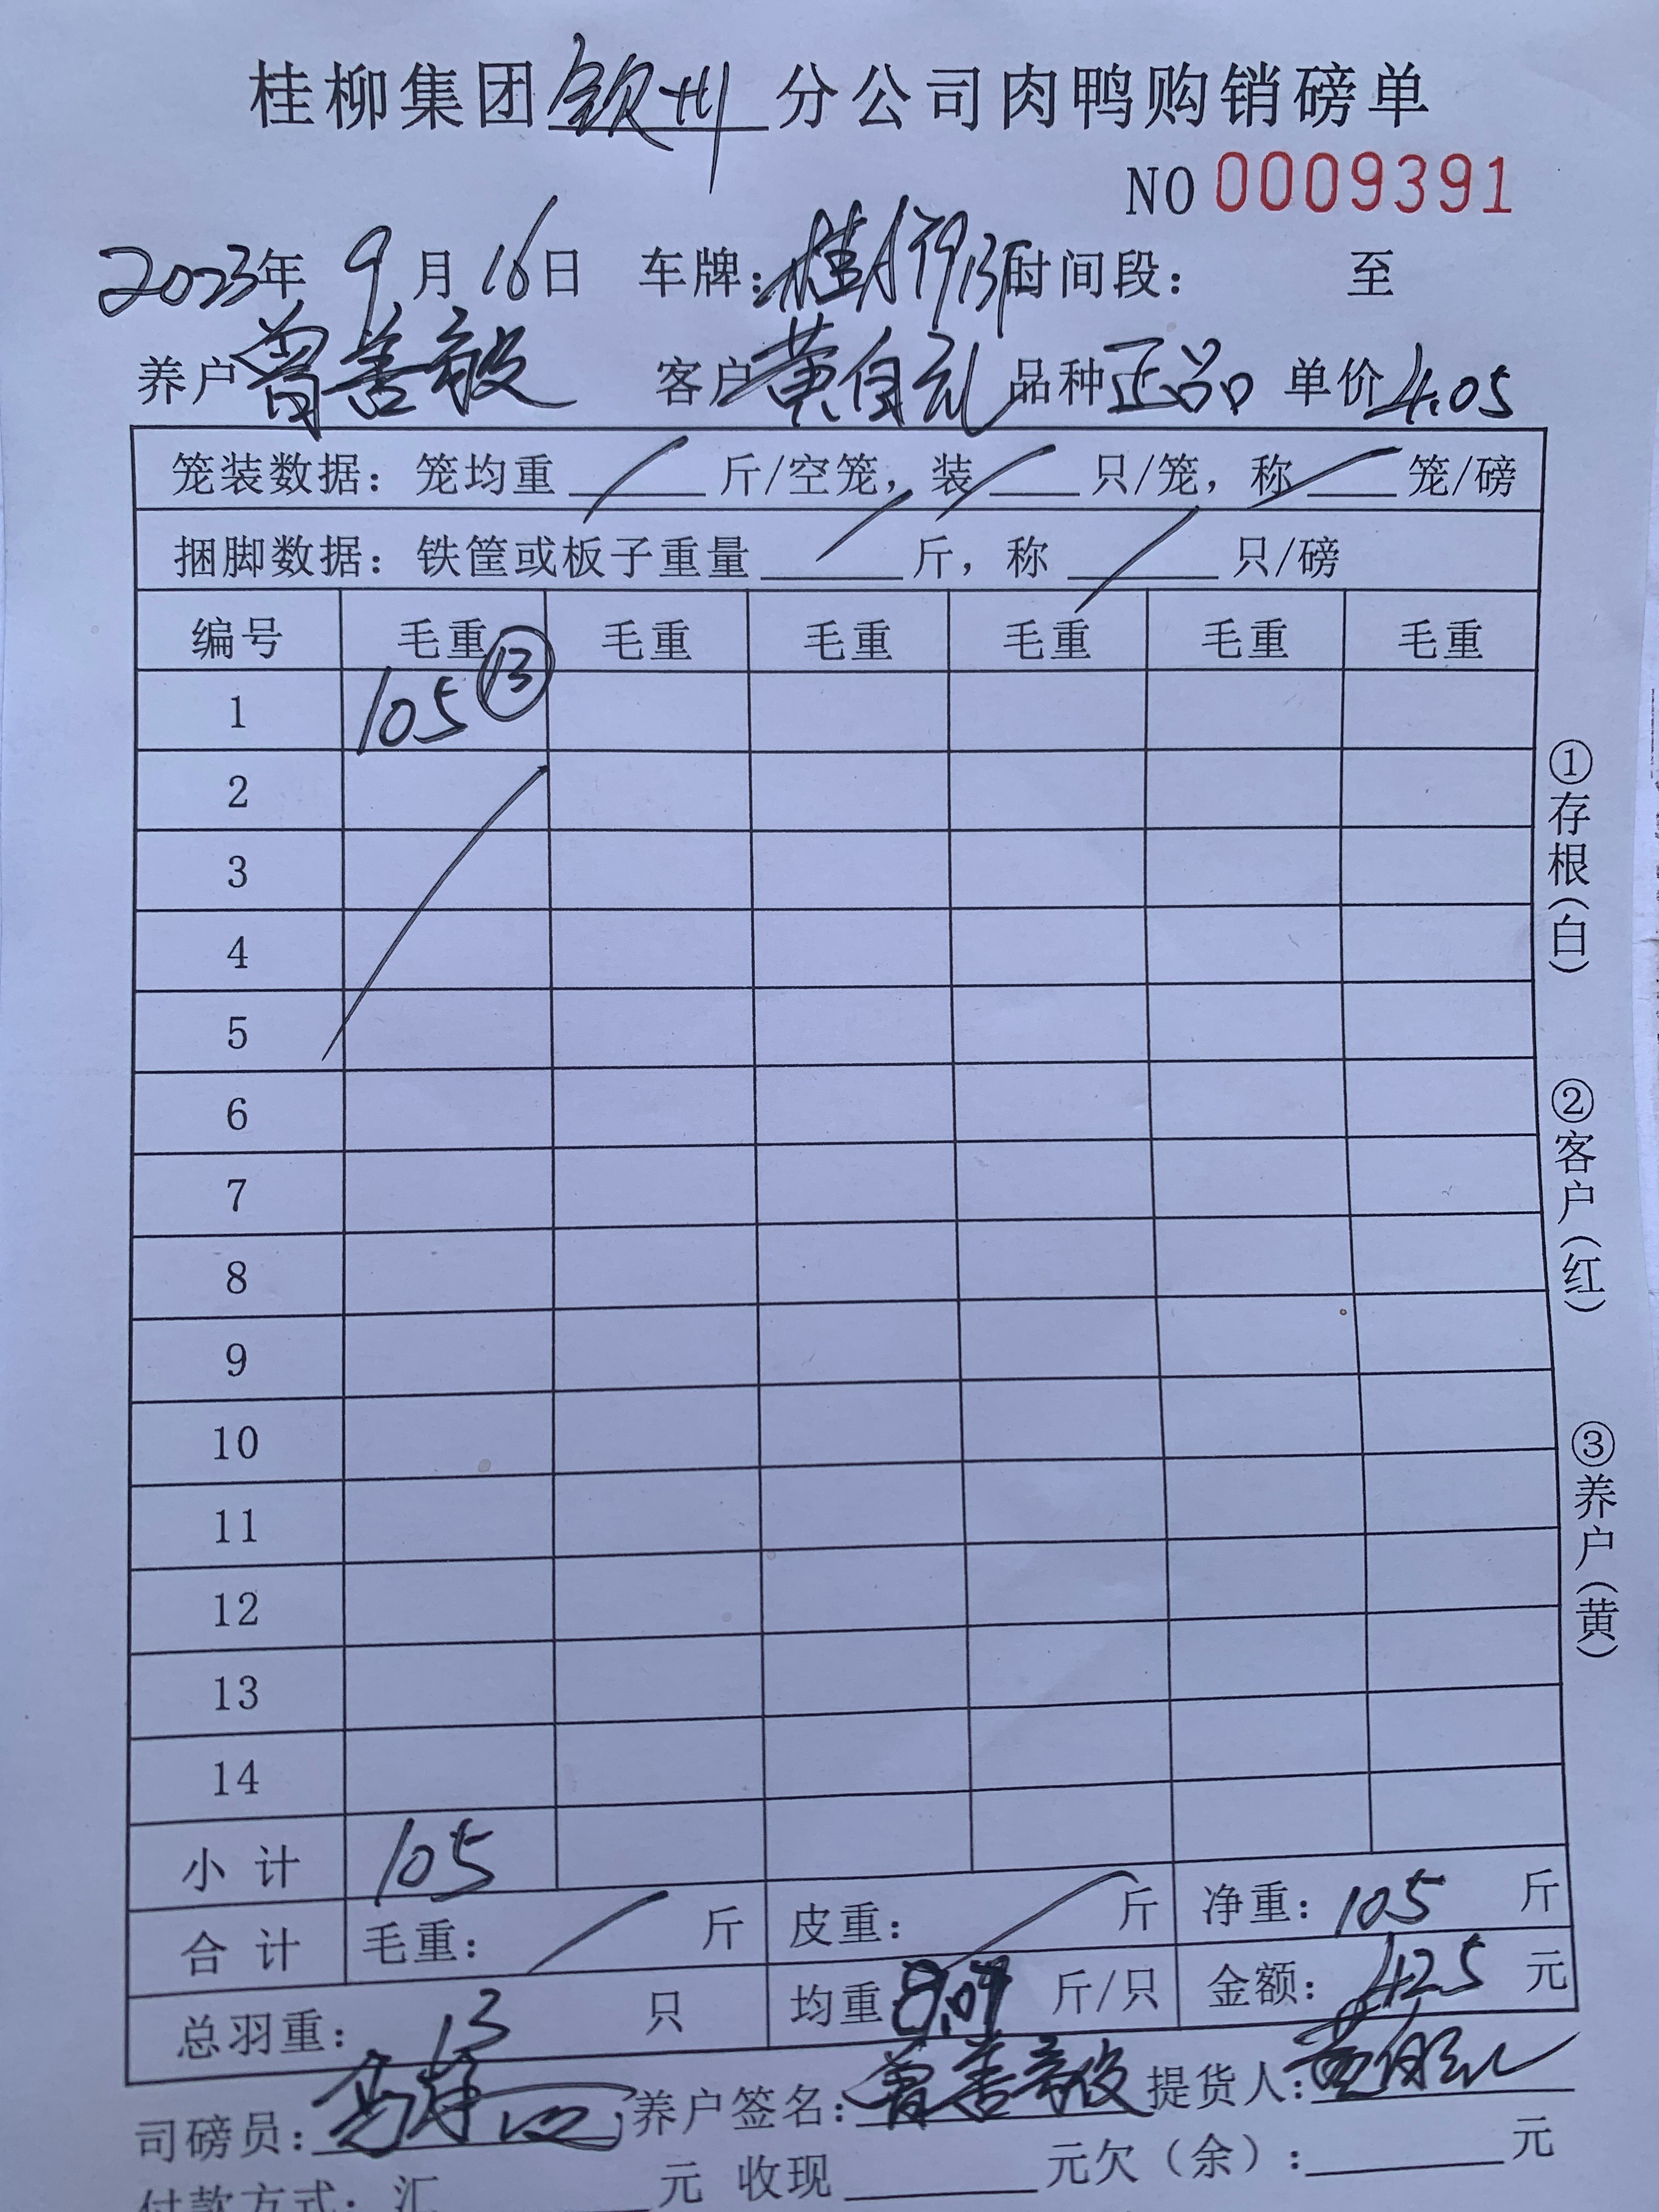 桂柳集团钦州分公司肉鸭购销磅单
NO 0009391
2023年 9月 16日 车牌: 时间段: 至
养户 曾善敏 客户 黄自元 品种 正品 单价 4.05
笼装数据: 笼均重 斤/空笼, 装 只/笼, 称 笼/磅
捆脚数据: 铁筐或板子重量 斤, 称 只/磅
编号 毛重 毛重 毛重 毛重 毛重 毛重
1 105 ⑬
2
3
4
5
6
7
8
9
10
11
12
13
14
小计 105
合计 毛重: 斤 皮重: 斤 净重: 105 斤
总羽重: 13 只 均重 斤/只 金额: 425 元
司磅员: 养户签名: 曾善敏 提货人:
付款方式: 汇 元 收现 元欠(余): 元
①存根(白)
②客户(红)
③养户(黄)